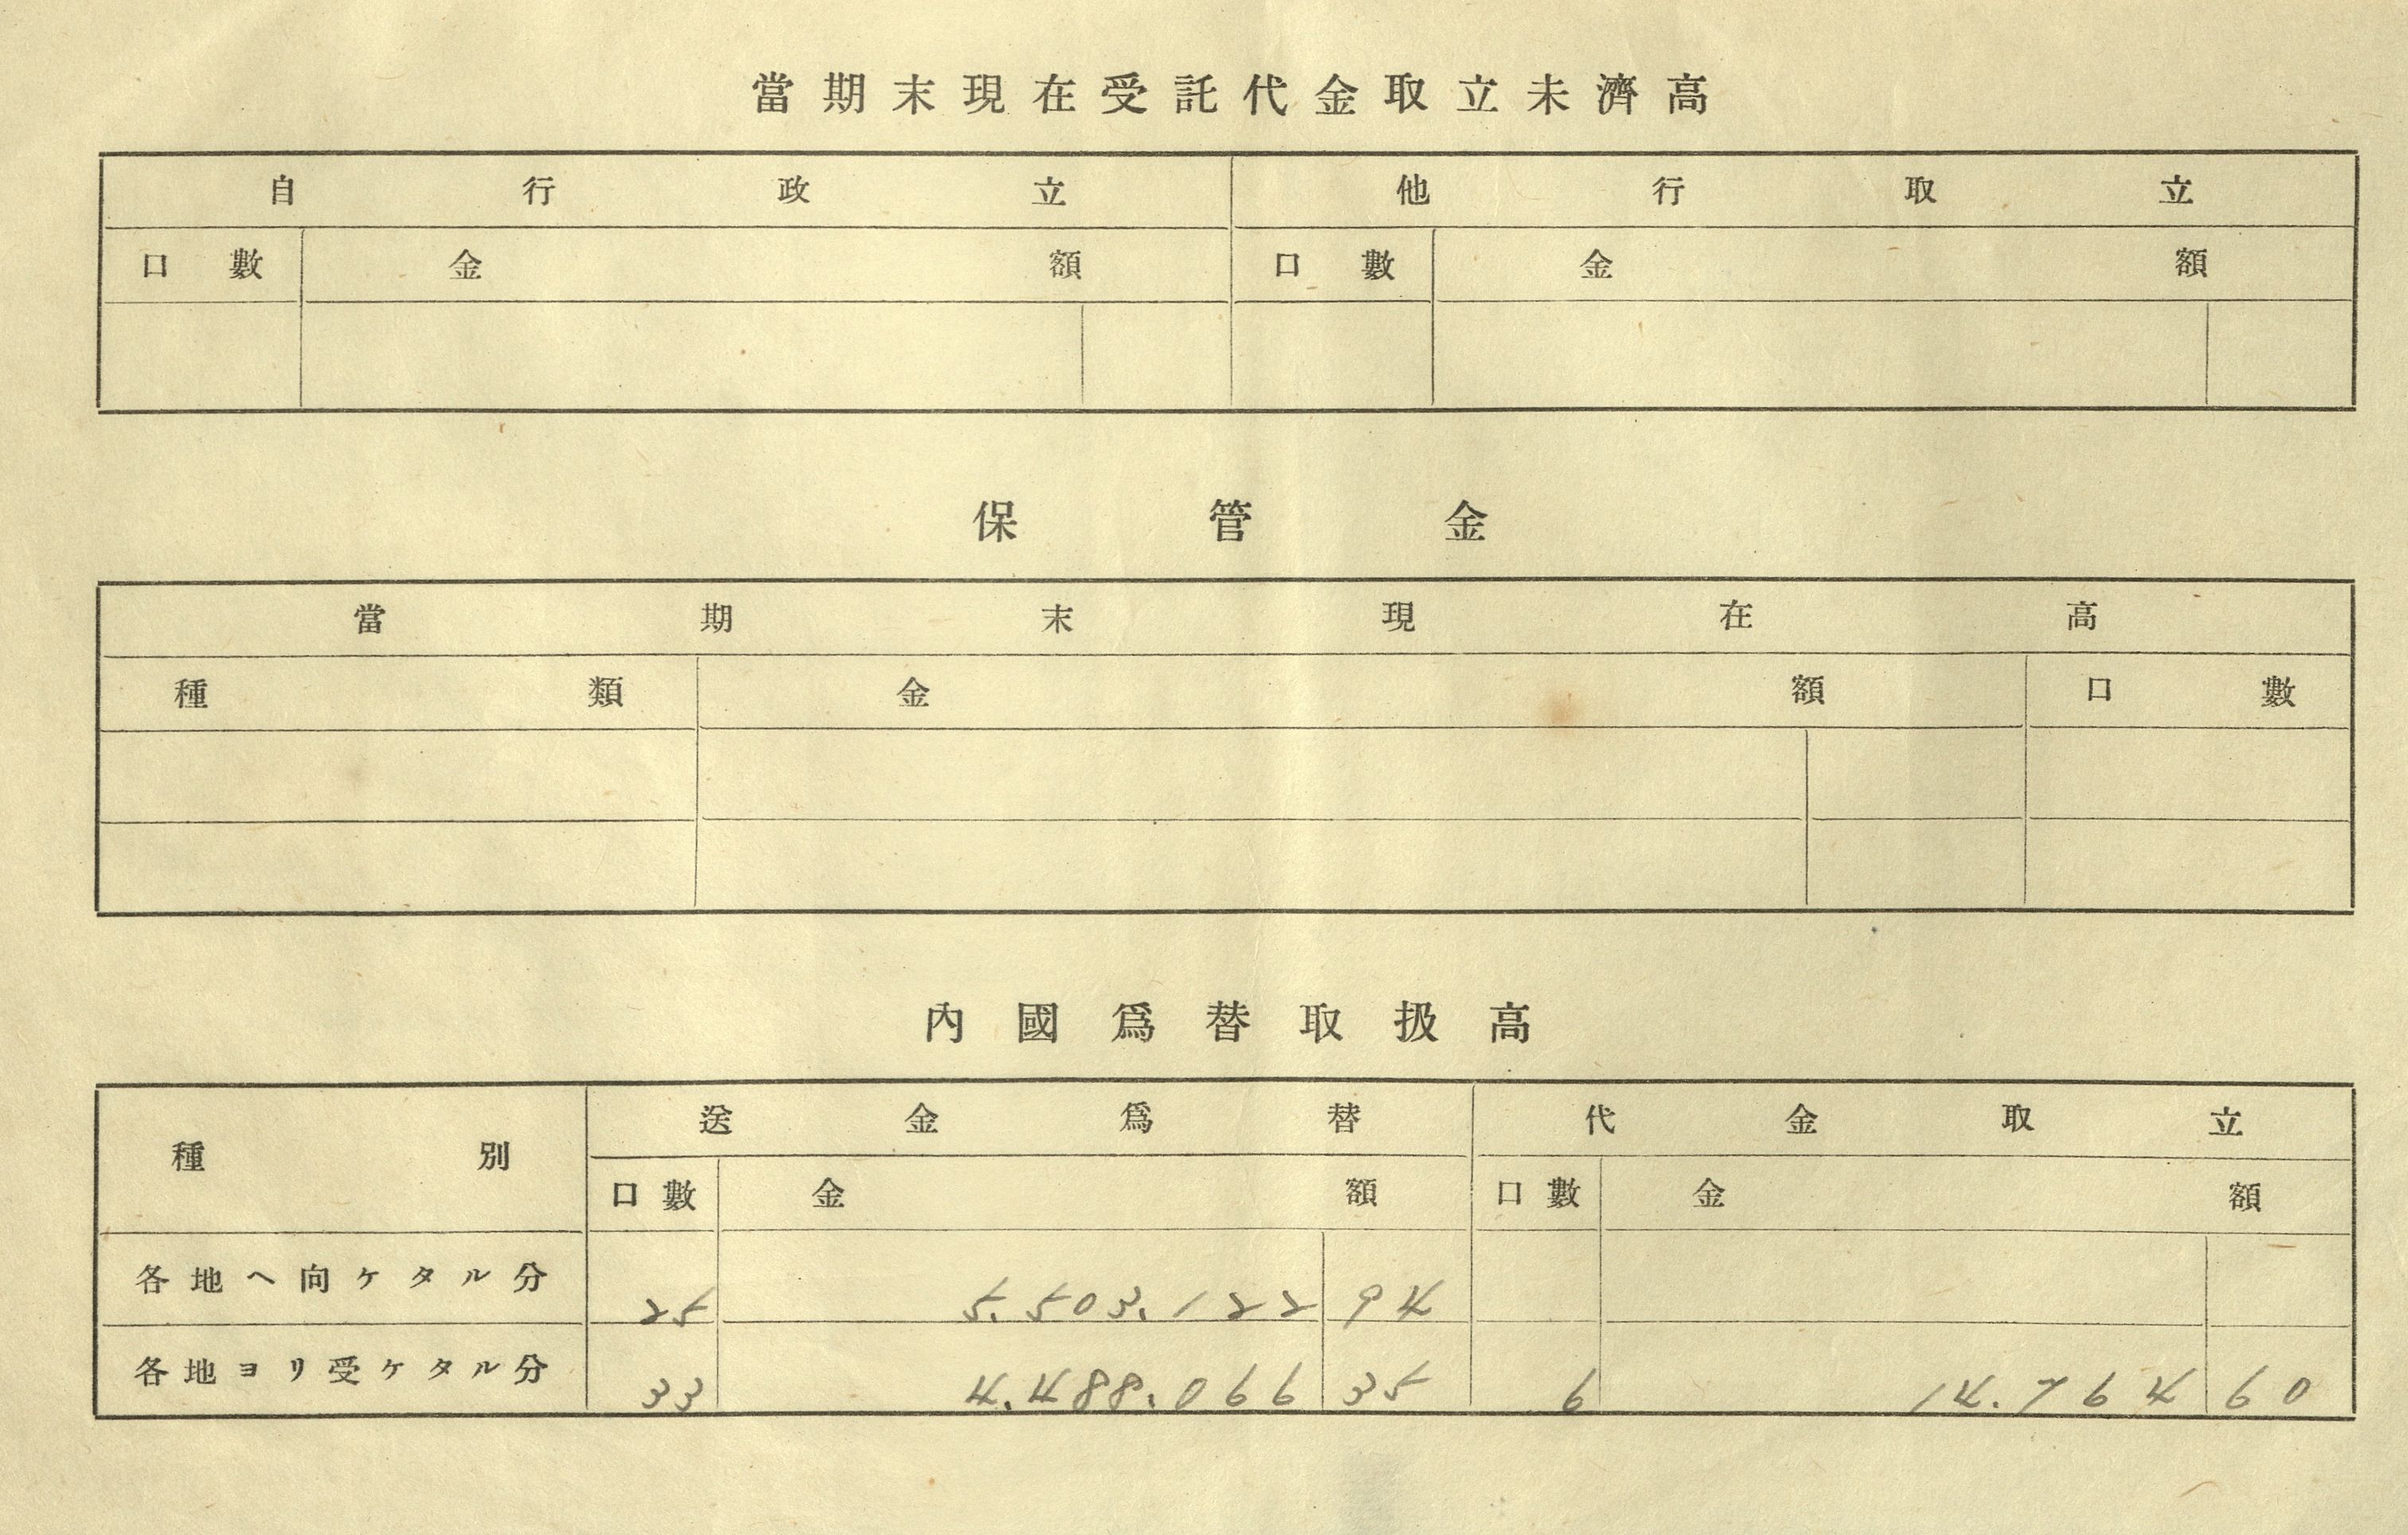 當期末現在受託代金取立未濟高
自行政立 他行取立
口數 金額 口數 金額
保管金
當期末現在高
種類 金額 口數
內國爲替取扱高
種別 送金爲替 代金取立
口數 金額 口數 金額
各地ヘ向ケタル分 25 5.503.122 94
各地ヨリ受ケタル分 33 4.488.066 35 6 14.764 60